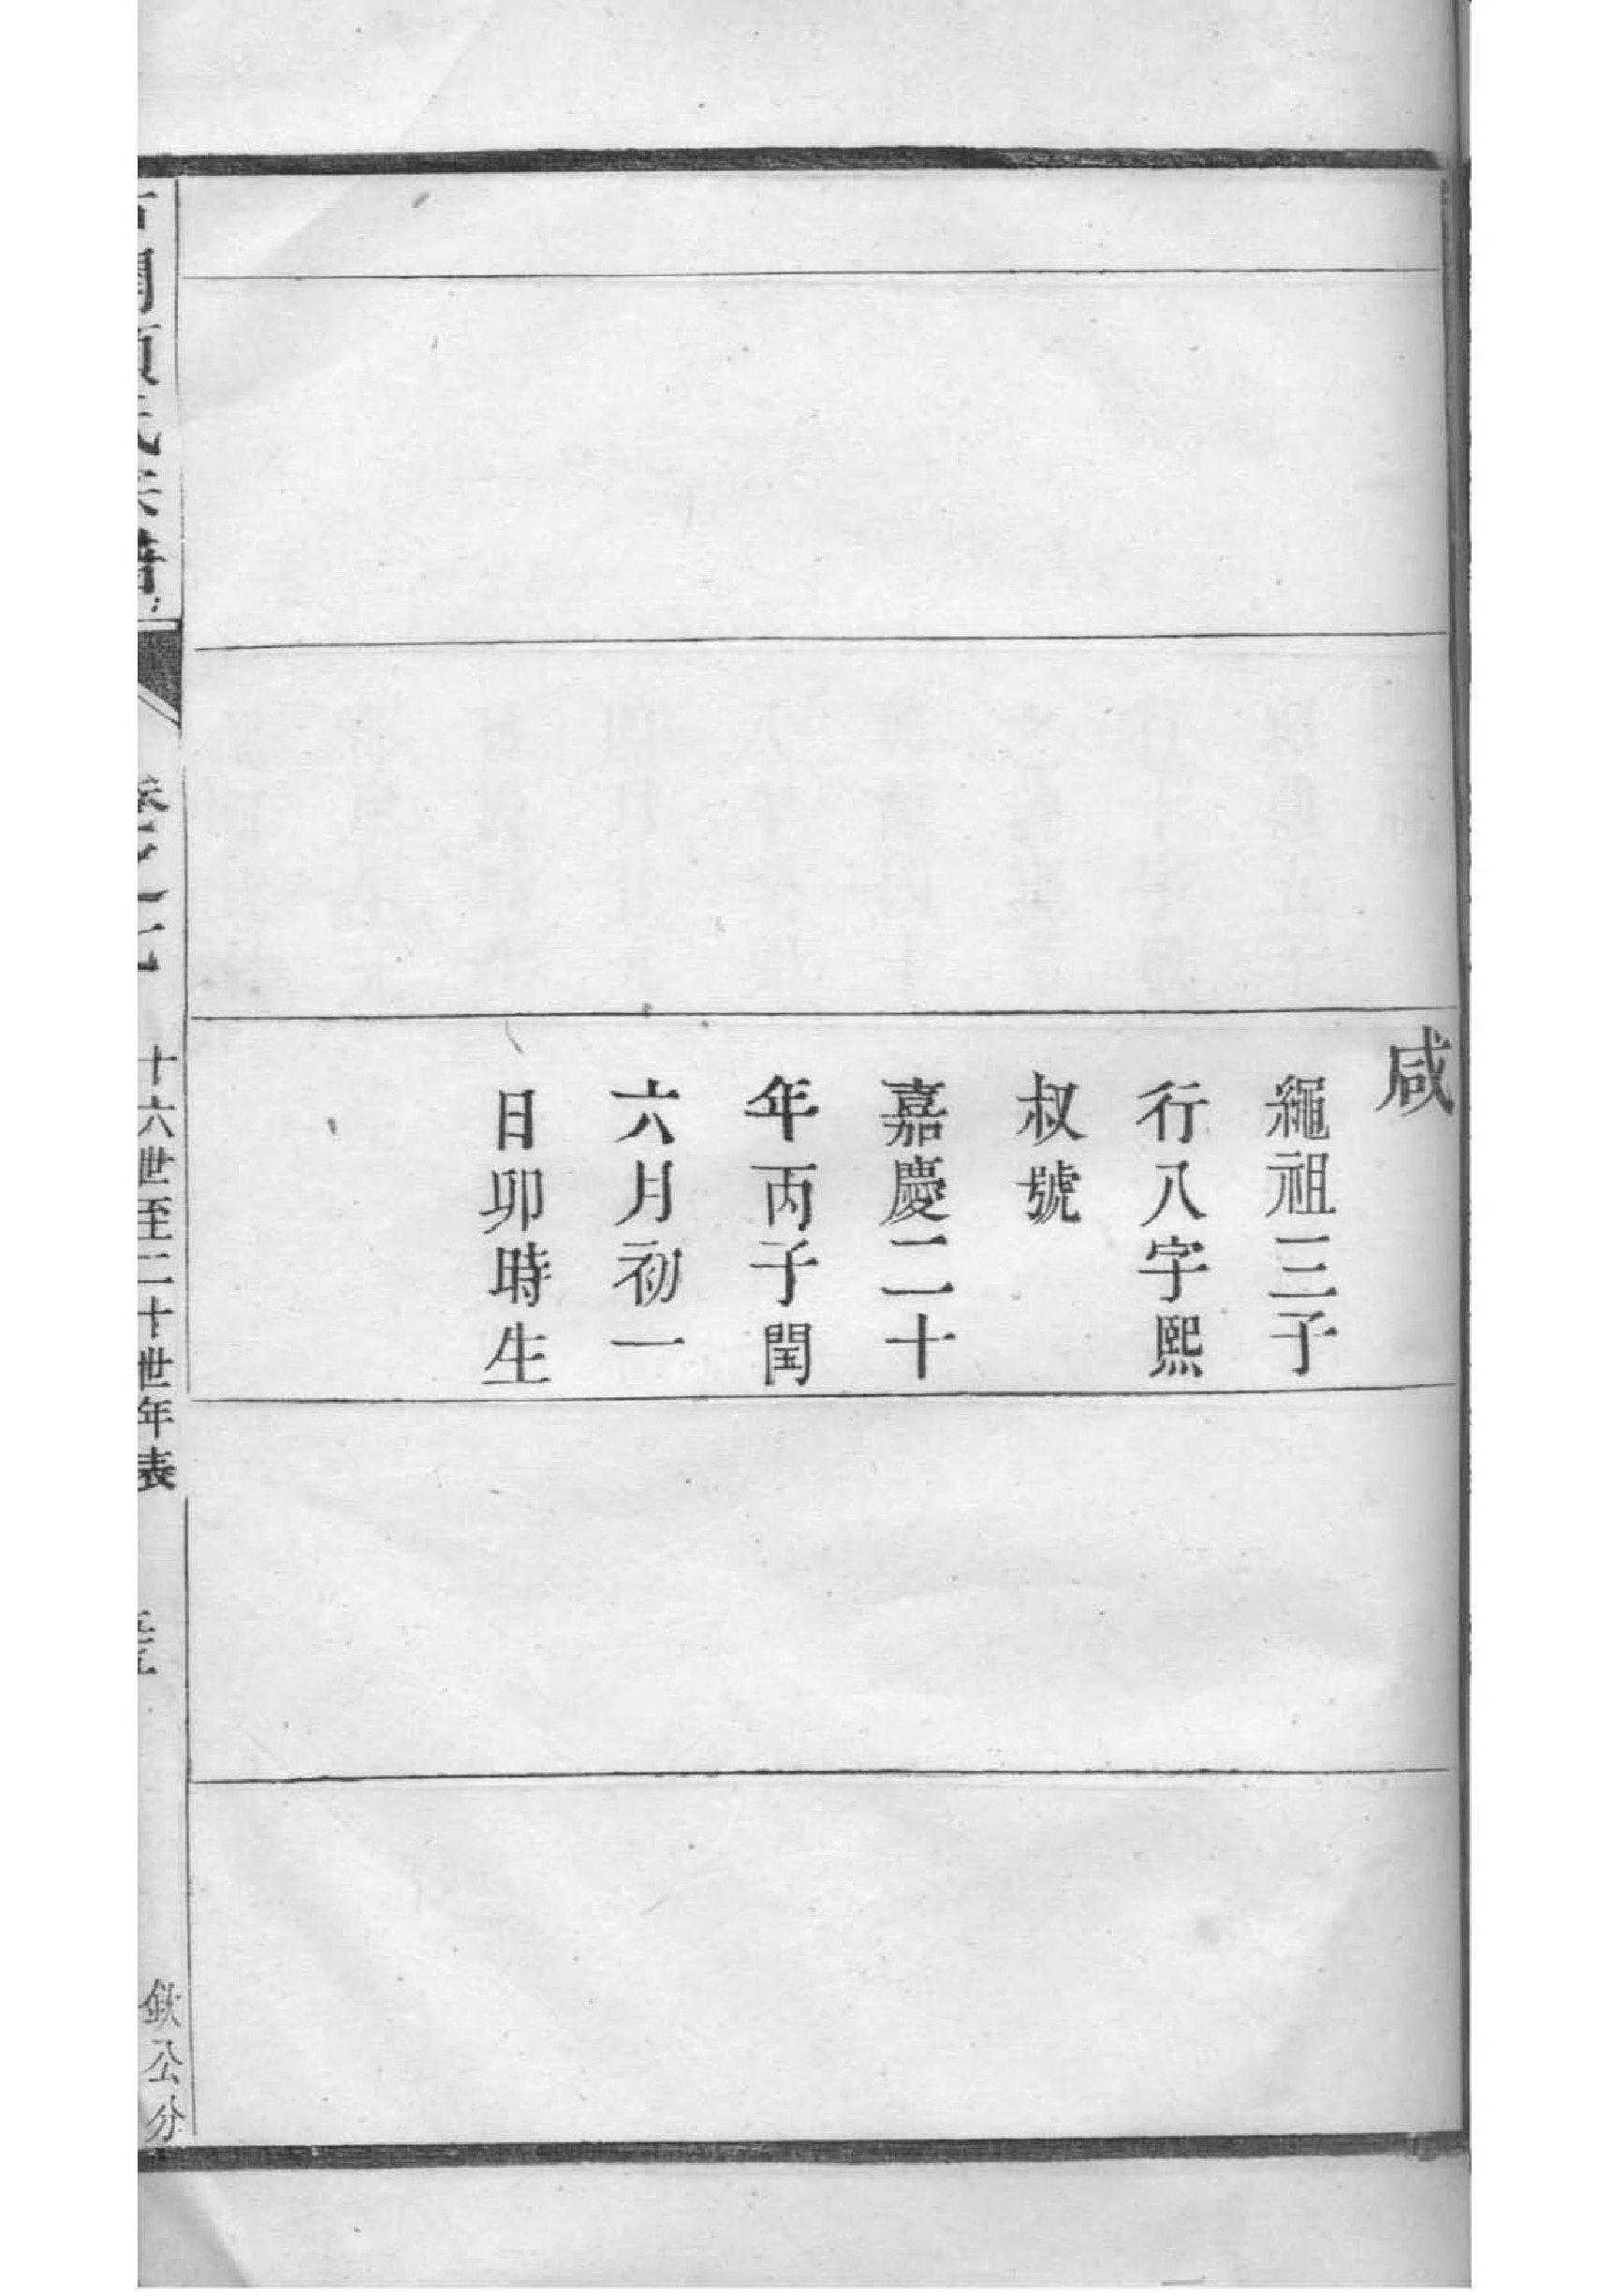 咸
繩祖三子
行八字熙
叔號
嘉慶二十
年丙子閏
六月初一
日卯時生
卷之七
十六世至二十世年表
欽公分